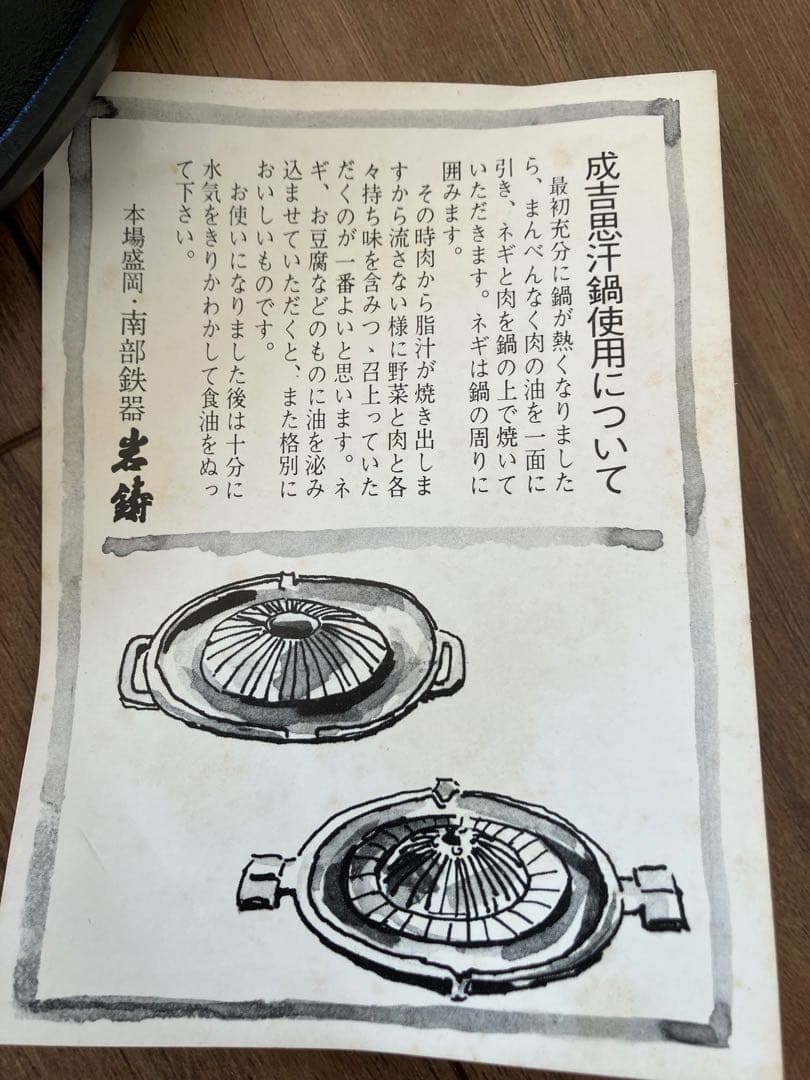 成吉思汗鍋使用について
最初充分に鍋が熱くなりました
ら、まんべんなく肉の油を一面に
引き、ネギと肉を鍋の上で焼いて
いただきます。ネギは鍋の周りに
囲みます。
その時肉から脂汁が焼き出しま
すから流さない様に野菜と肉と各
々持ち味を含みつゝ召上っていた
だくのが一番よいと思います。ネ
ギ、お豆腐などのものに油を泌み
込ませていただくと、また格別に
おいしいものです。
お使いになりました後は十分に
水気をきりかわかして食油をぬっ
て下さい。
本場盛岡・南部鉄器 岩鋳